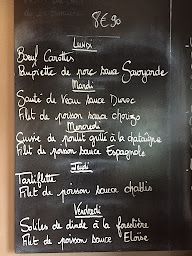 8€90
Lundi
Bœuf Carottes
de porc sauce Savoyarde
Mardi
Sauté de Veau sauce Duroc
Filet de poisson sauce chorizo
Mercredi
Cuisse de poulet grillé à la
Filet de poisson sauce Espagnole
Jeudi
Tartiflette
Filet de poisson sauce chablis
Vendredi
de dinde à la forestière
Filet de poisson sauce Eloïse